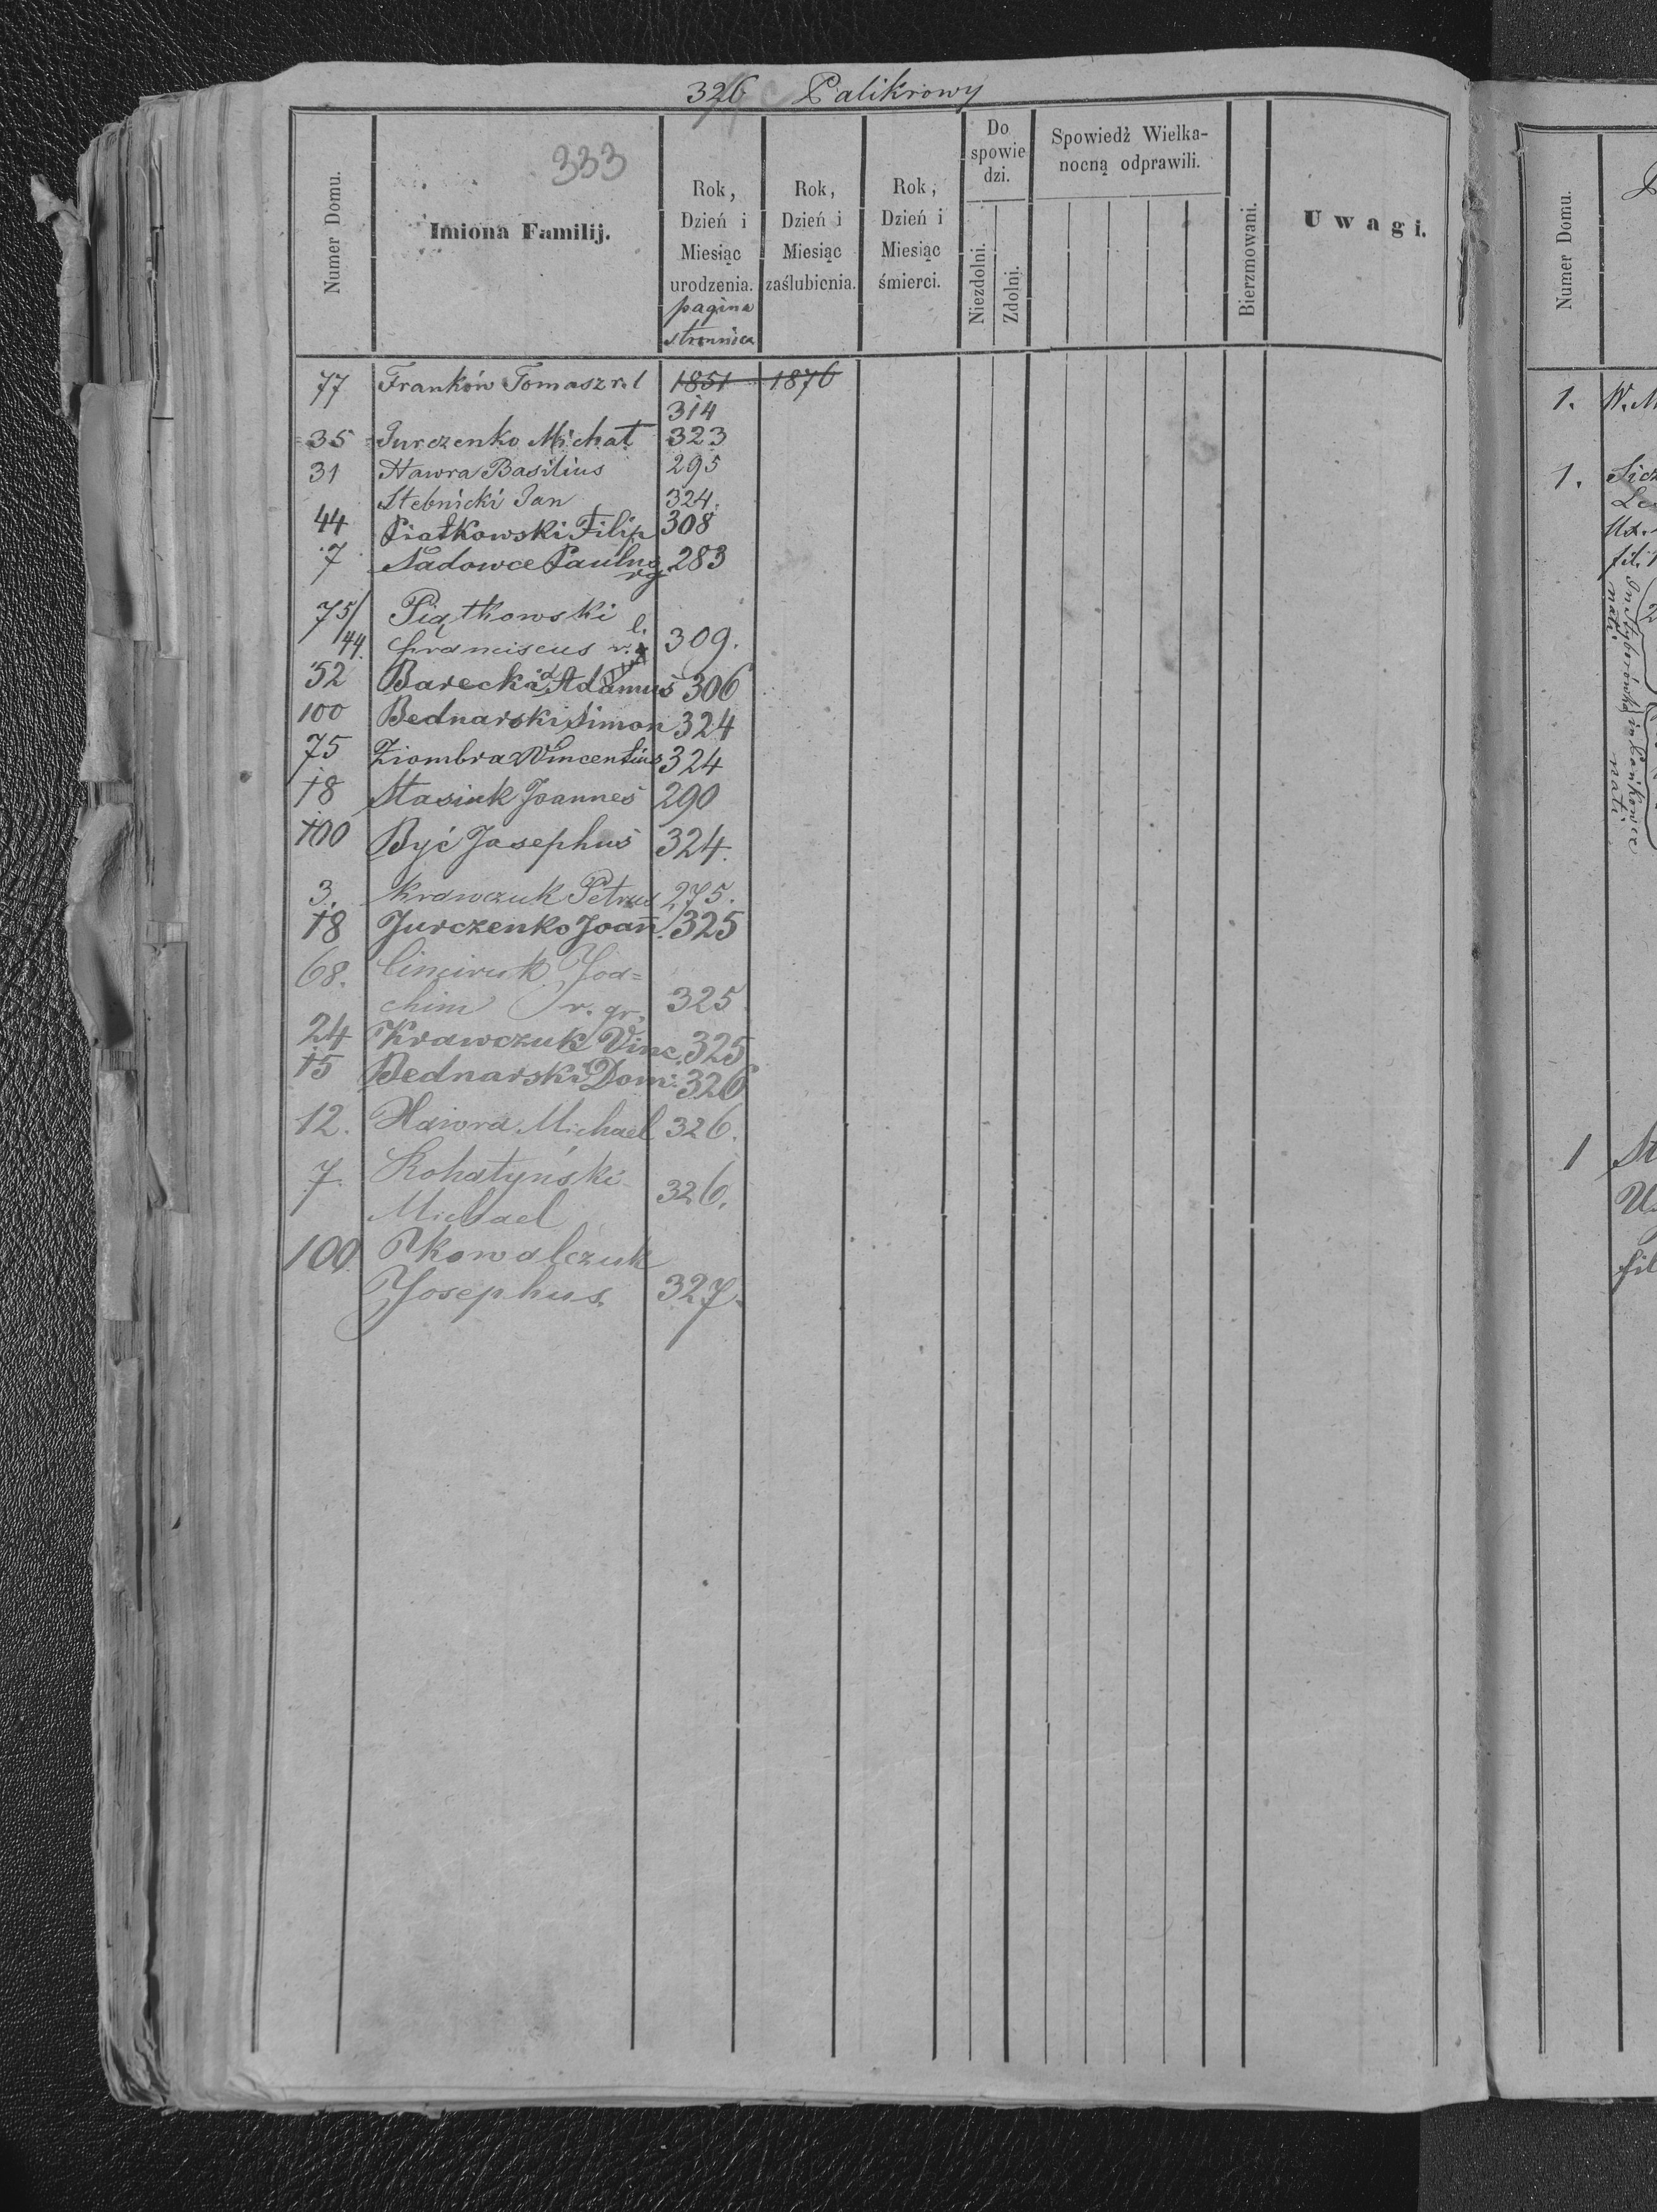 326 Palikrowy
333
Numer Domu.
Imiona Familij.
Rok, Dzień i Miesiąc urodzenia.
pagina
stronnica
Rok, Dzień i Miesiąc zaślubienia.
Rok, Dzień i Miesiąc śmierci.
Do spowiedzi.
Niezdolni.
Zdolni.
Spowiedź Wielka-
nocną odprawili.
Bierzmowani.
Uwagi.
77 Franków Tomasz r. l 1851 1876
314
35 Jurczenko Michał 323
31 Hawra Basilius 295
Stebnicki Jan 324.
44 Piatkowski Filip 308
7 Nadowce Paulus 283
rg
75/ Piątkowski
44. Franciscus r. l. 309.
52 Barecki Adamus 306
100 Bednarski Simon 324
75 Ziombra Wincentius 324
18 Stasiuk Joannes 290
100 Być Josephus 324.
3. Krawczuk Petrus 275.
18 Jurczenko Joan̄. 325
68. Joa=
chim r. gr. 325
24 Krawczuk Vinc. 325
15 Bednarski Dom. 326
12. Hawra Michael 326.
7. Rohatyński
Michael 326.
100 Kowalczuk
Josephus 327.
Numer Domu.
1.
1.
1